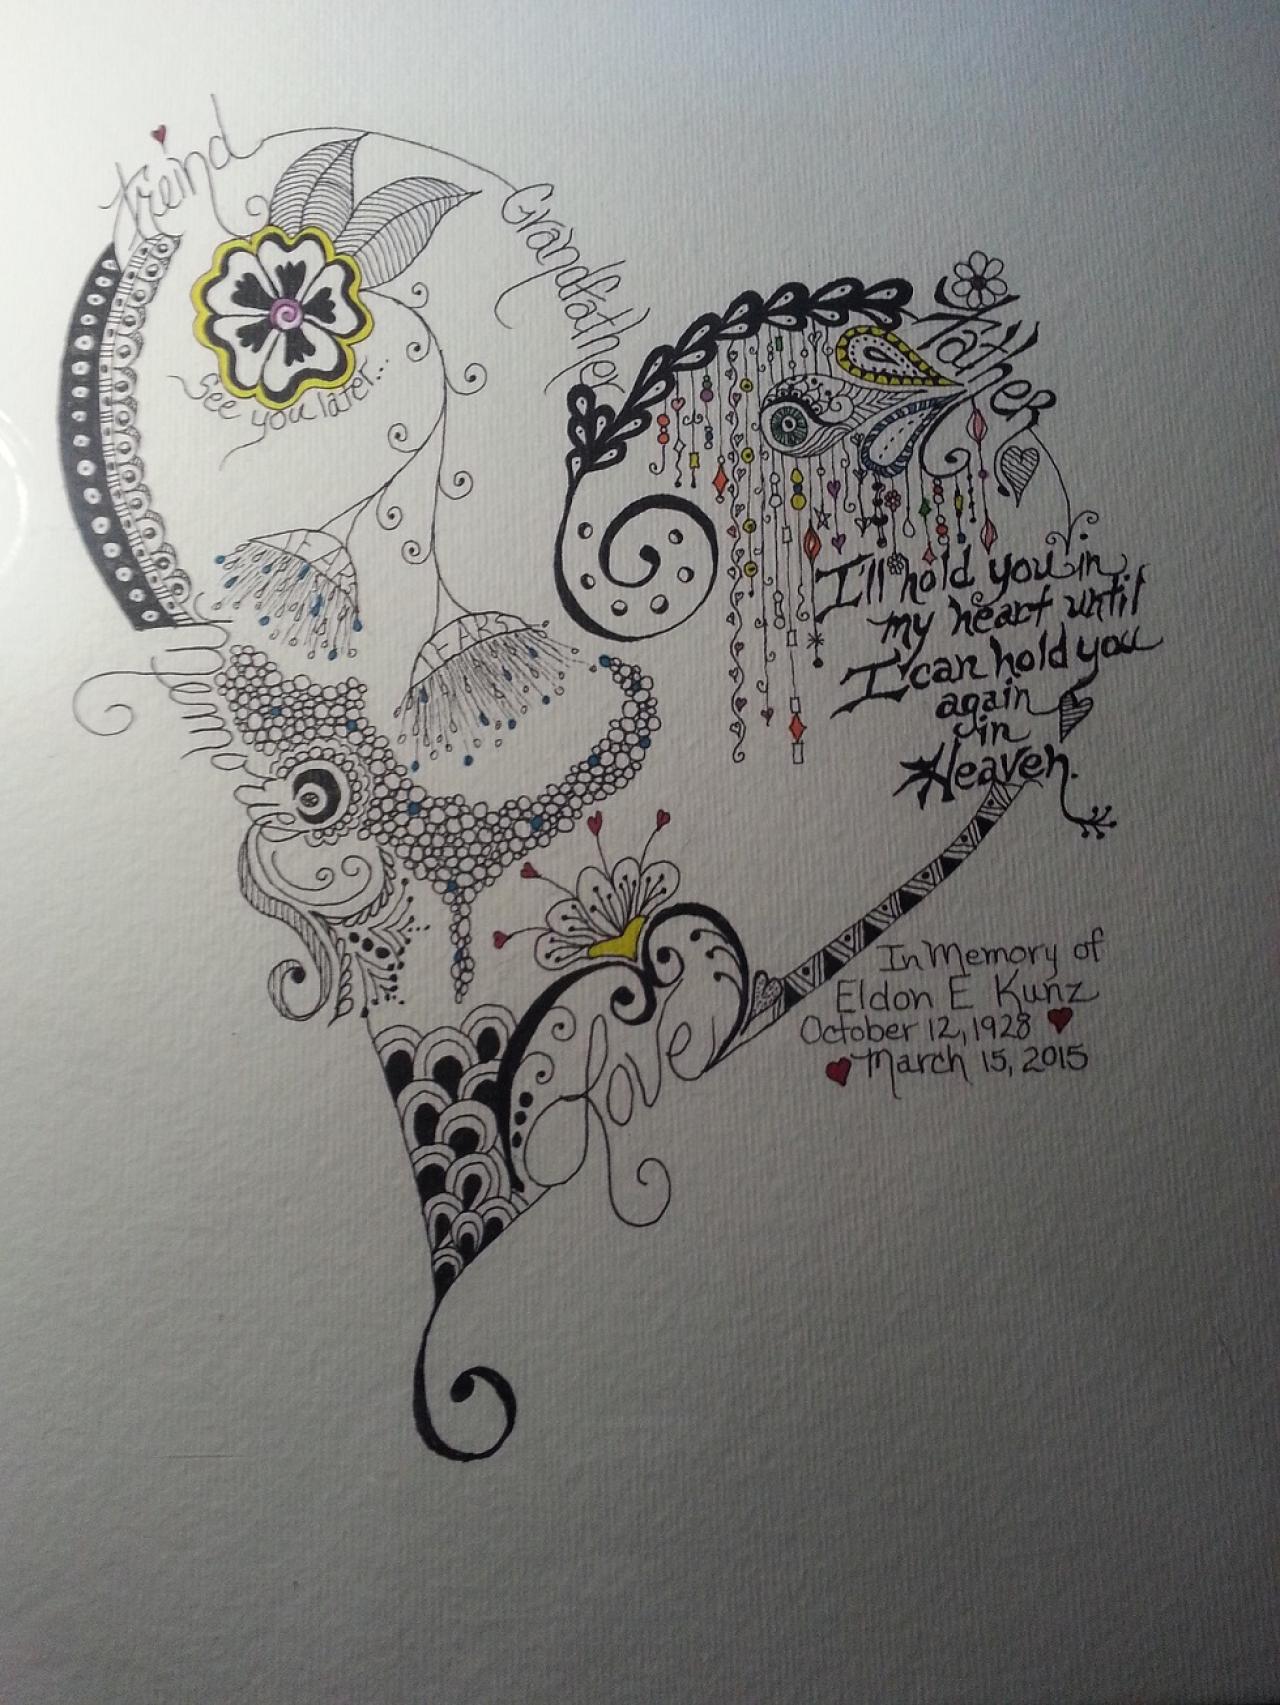 freind
Grandfather
Father
See you later...
TEARS
I'll hold you in
my heart until
I can hold you
again
in
Heaven.
Love
In Memory of
Eldon E Kunz
October 12, 1928
March 15, 2015